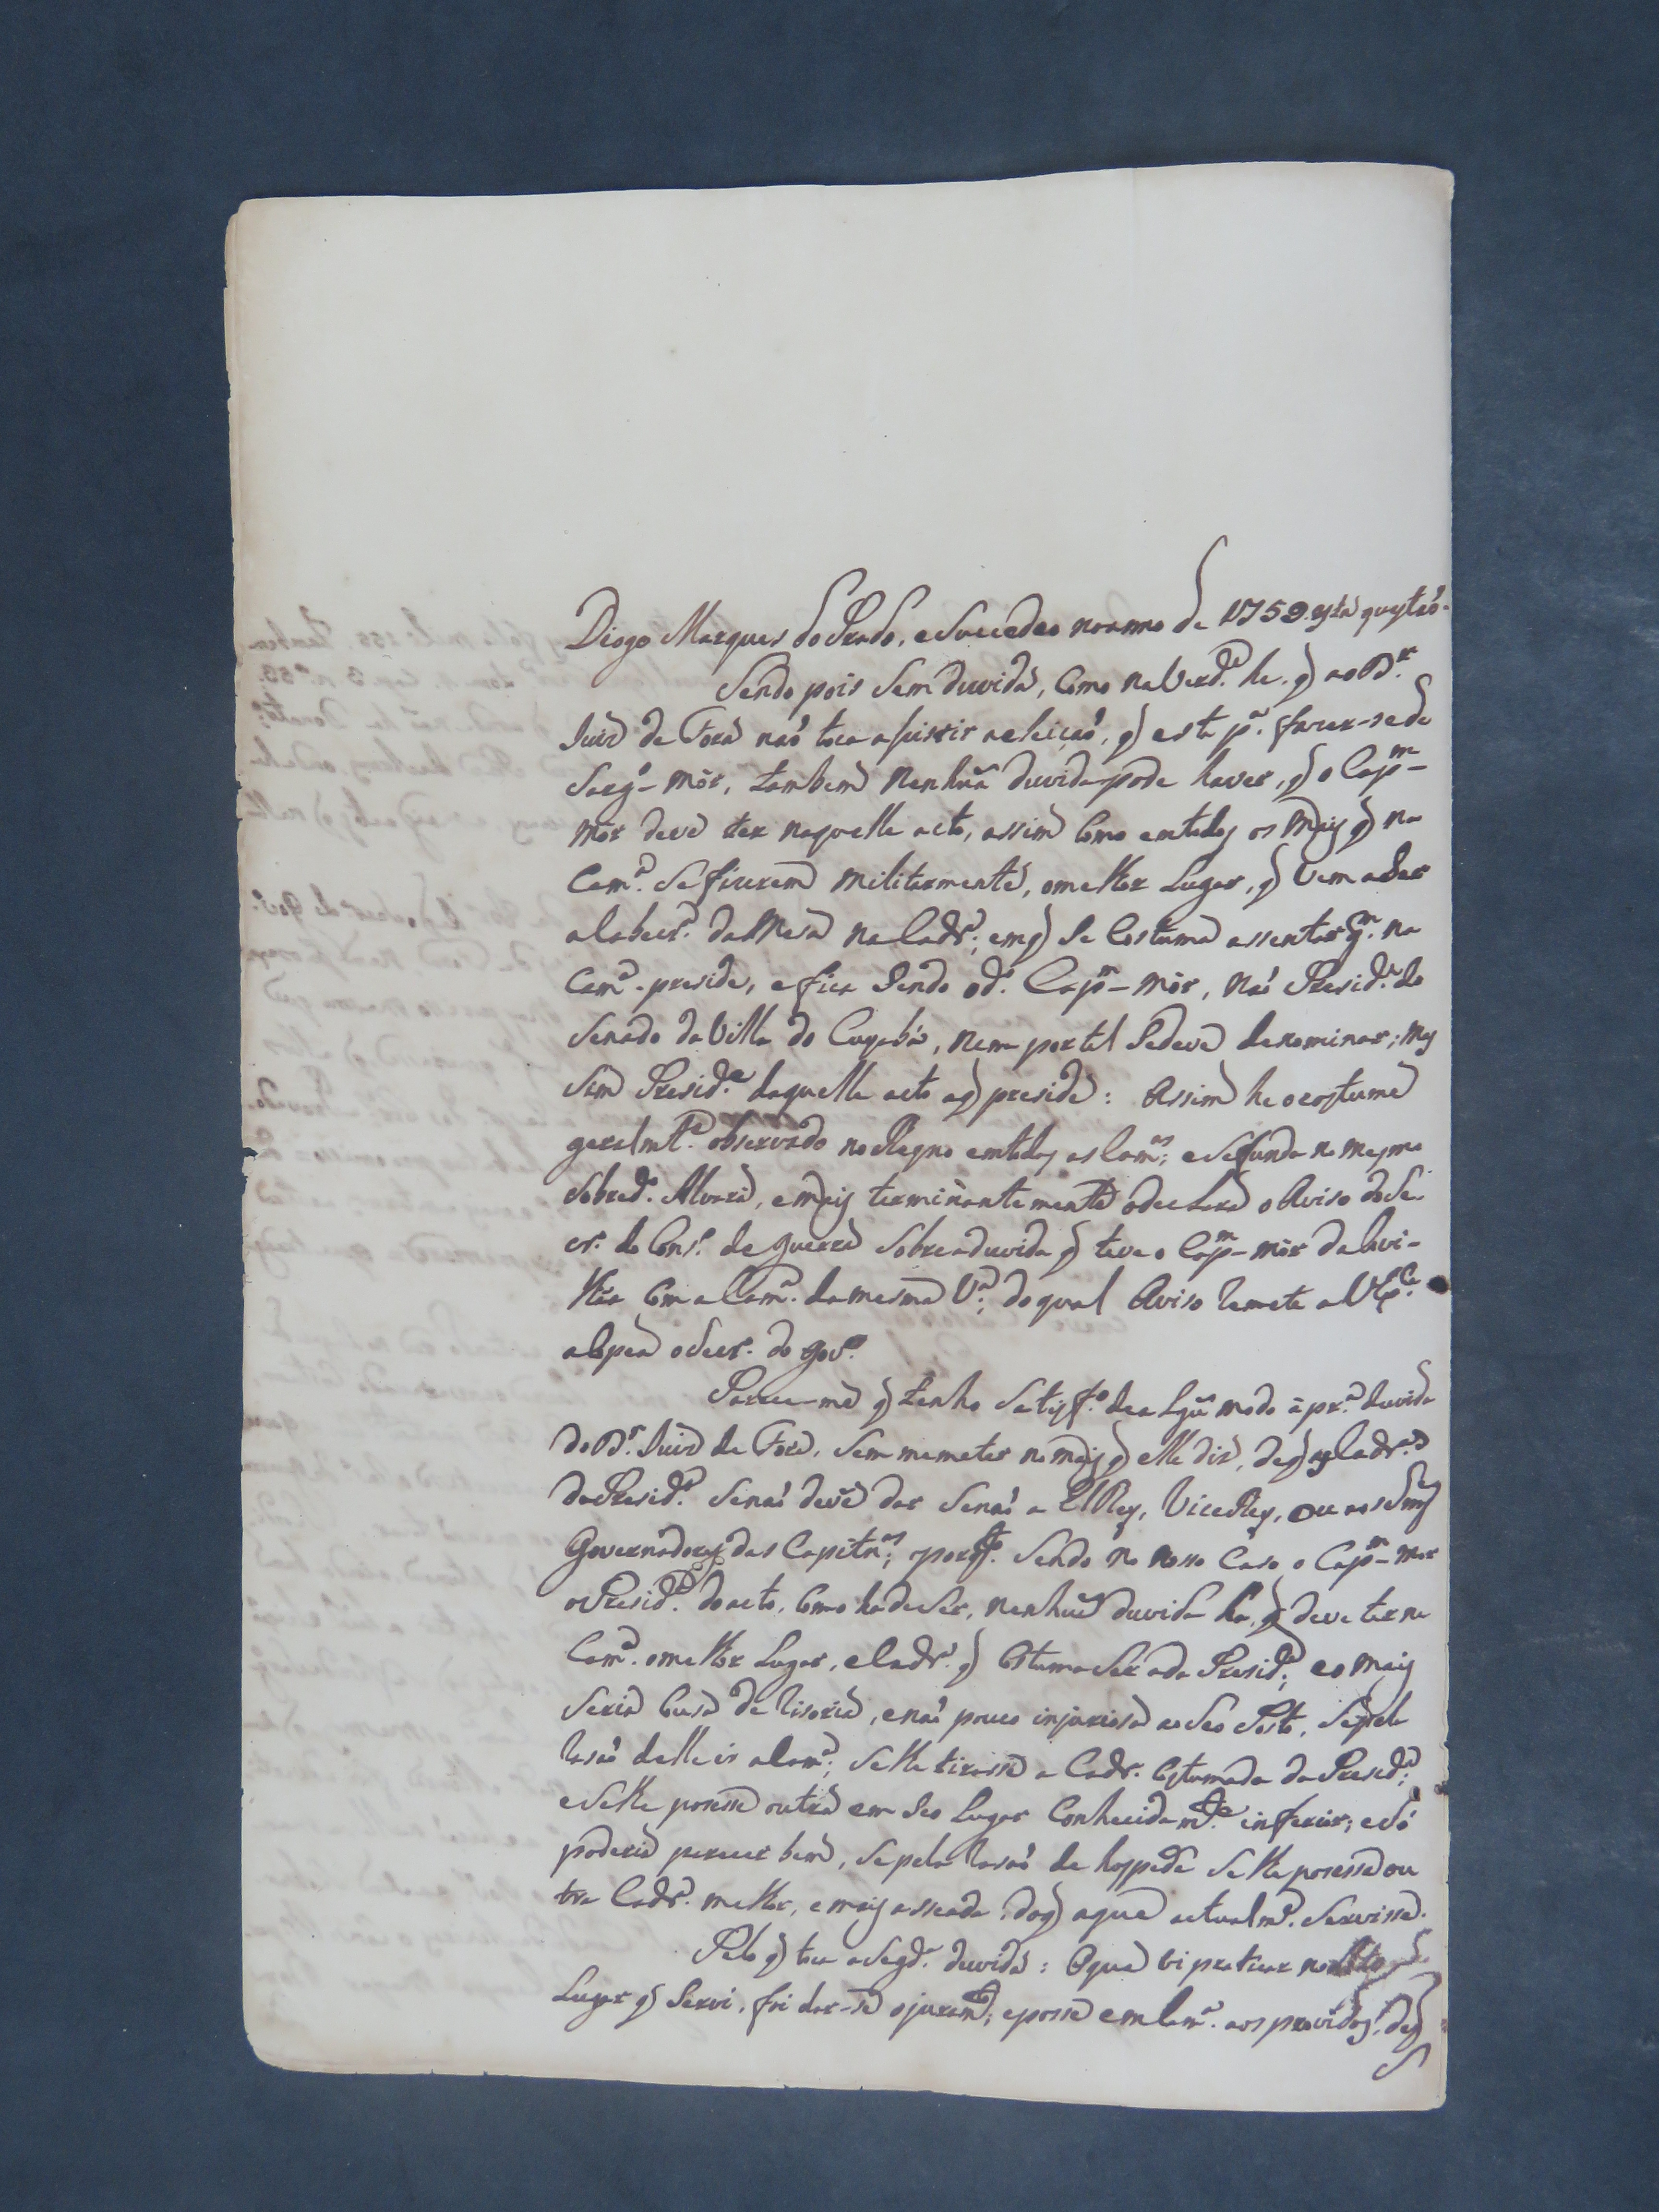 Diogo Marques do Prado, e Succedeo no anno de 1759 esta questaõ.
Sendo pois Sem duvida, Como na Verd.e he, q̃ ao D.r
Juiz de Fora naõ toca assistir a eleiçaõ, q̃ esta p.a fazer-se de
Sarg.to mór, tambem Nenhũa duvida pode haver, q̃ o Cap.m
mór deve ter naquelle acto, assim Como em todos os mais q̃ na
Cam.a Se fizerem Militarmente, o melhor Lugar, q̃ Vem a Ser
a Cabecr.a da Mesa na Cadr.a; em q̃ Se Costuma assentar q.m na
Cam.a preside, e fica Sendo o d.o Cap.m mór, Naõ Presid.e do
Senado da Villa do Cuyabá, Nem por tal Se deve denominar; mas
Sim Presid.e daquelle acto a q̃ preside: Assim he o costume
geralm.te observado no Reyno em todas as Cam.as; e Se funda no mesmo
Sobred.o Alvará, e mais terminantemente o declara o Aviso do Se-
cr.o do Cons.o de guerra Sobre a duvida q̃ teve o Cap.m mór da Covi-
lhãa Com a Cam.a da mesma V.a; do qual Aviso Remete a V. Ex.ca
a Copea o Secr.o do gov.o
Parece-me q̃ tenho Satisf.o de algũ modo á pr.a duvida
do D.r Juiz de Fora, Sem me meter no mais q̃ elle diz, de q̃ as Cadr.as
da Presid.a Se naõ deve dar Senaõ a ElRey, ViceRey, ou aos Snr.es
Governadores das Capitn.as; porq.to Sendo no nosso Caso o Cap.m mor
o Presid.e do acto, Como ha de Ser, nenhũa duvida ha, q̃ deve ter na
Cam.a o melhor Lugar, e Cadr.a q̃ Costuma Ser a da Presid.a; e o mais
Seria Cousa de Risoria, e naõ pouco injuriosa ao Seo Posto, Se pela
Rasaõ delle ir a Cam.a; Se lhe tirasse a Cadr.a Costumada da Presid.a;
e Se lhe posesse outra em Seo Lugar Conhecidam.te inferior; e Só
poderia parecer bem, Se pela Rasaõ de hospede Se lhe posesse ou
tra Cadr.a melhor, e mais asseada, do q̃ a que actualm.e Servisse.
Pelo q̃ toca a Segd.a duvida: O que vi praticar no
Lugar q̃ Servi, foi dar-se o juram.to; e posse em Cam.a aos providos, de q̃